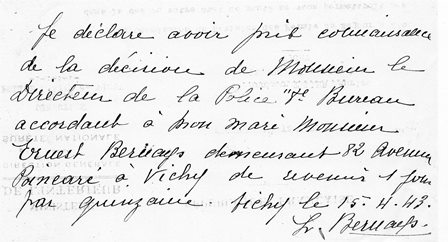 Je déclare avoir pris connaissance
de la décision de Monsieur le
Directeur de la Police Bureau
accordant à mon mari Monsieur
Ernest Bernays demeurant 82 Avenue
Poincaré à Vichy de revenir 1 jour
par quinzaine. Vichy le 15.4.42.
Bernays.